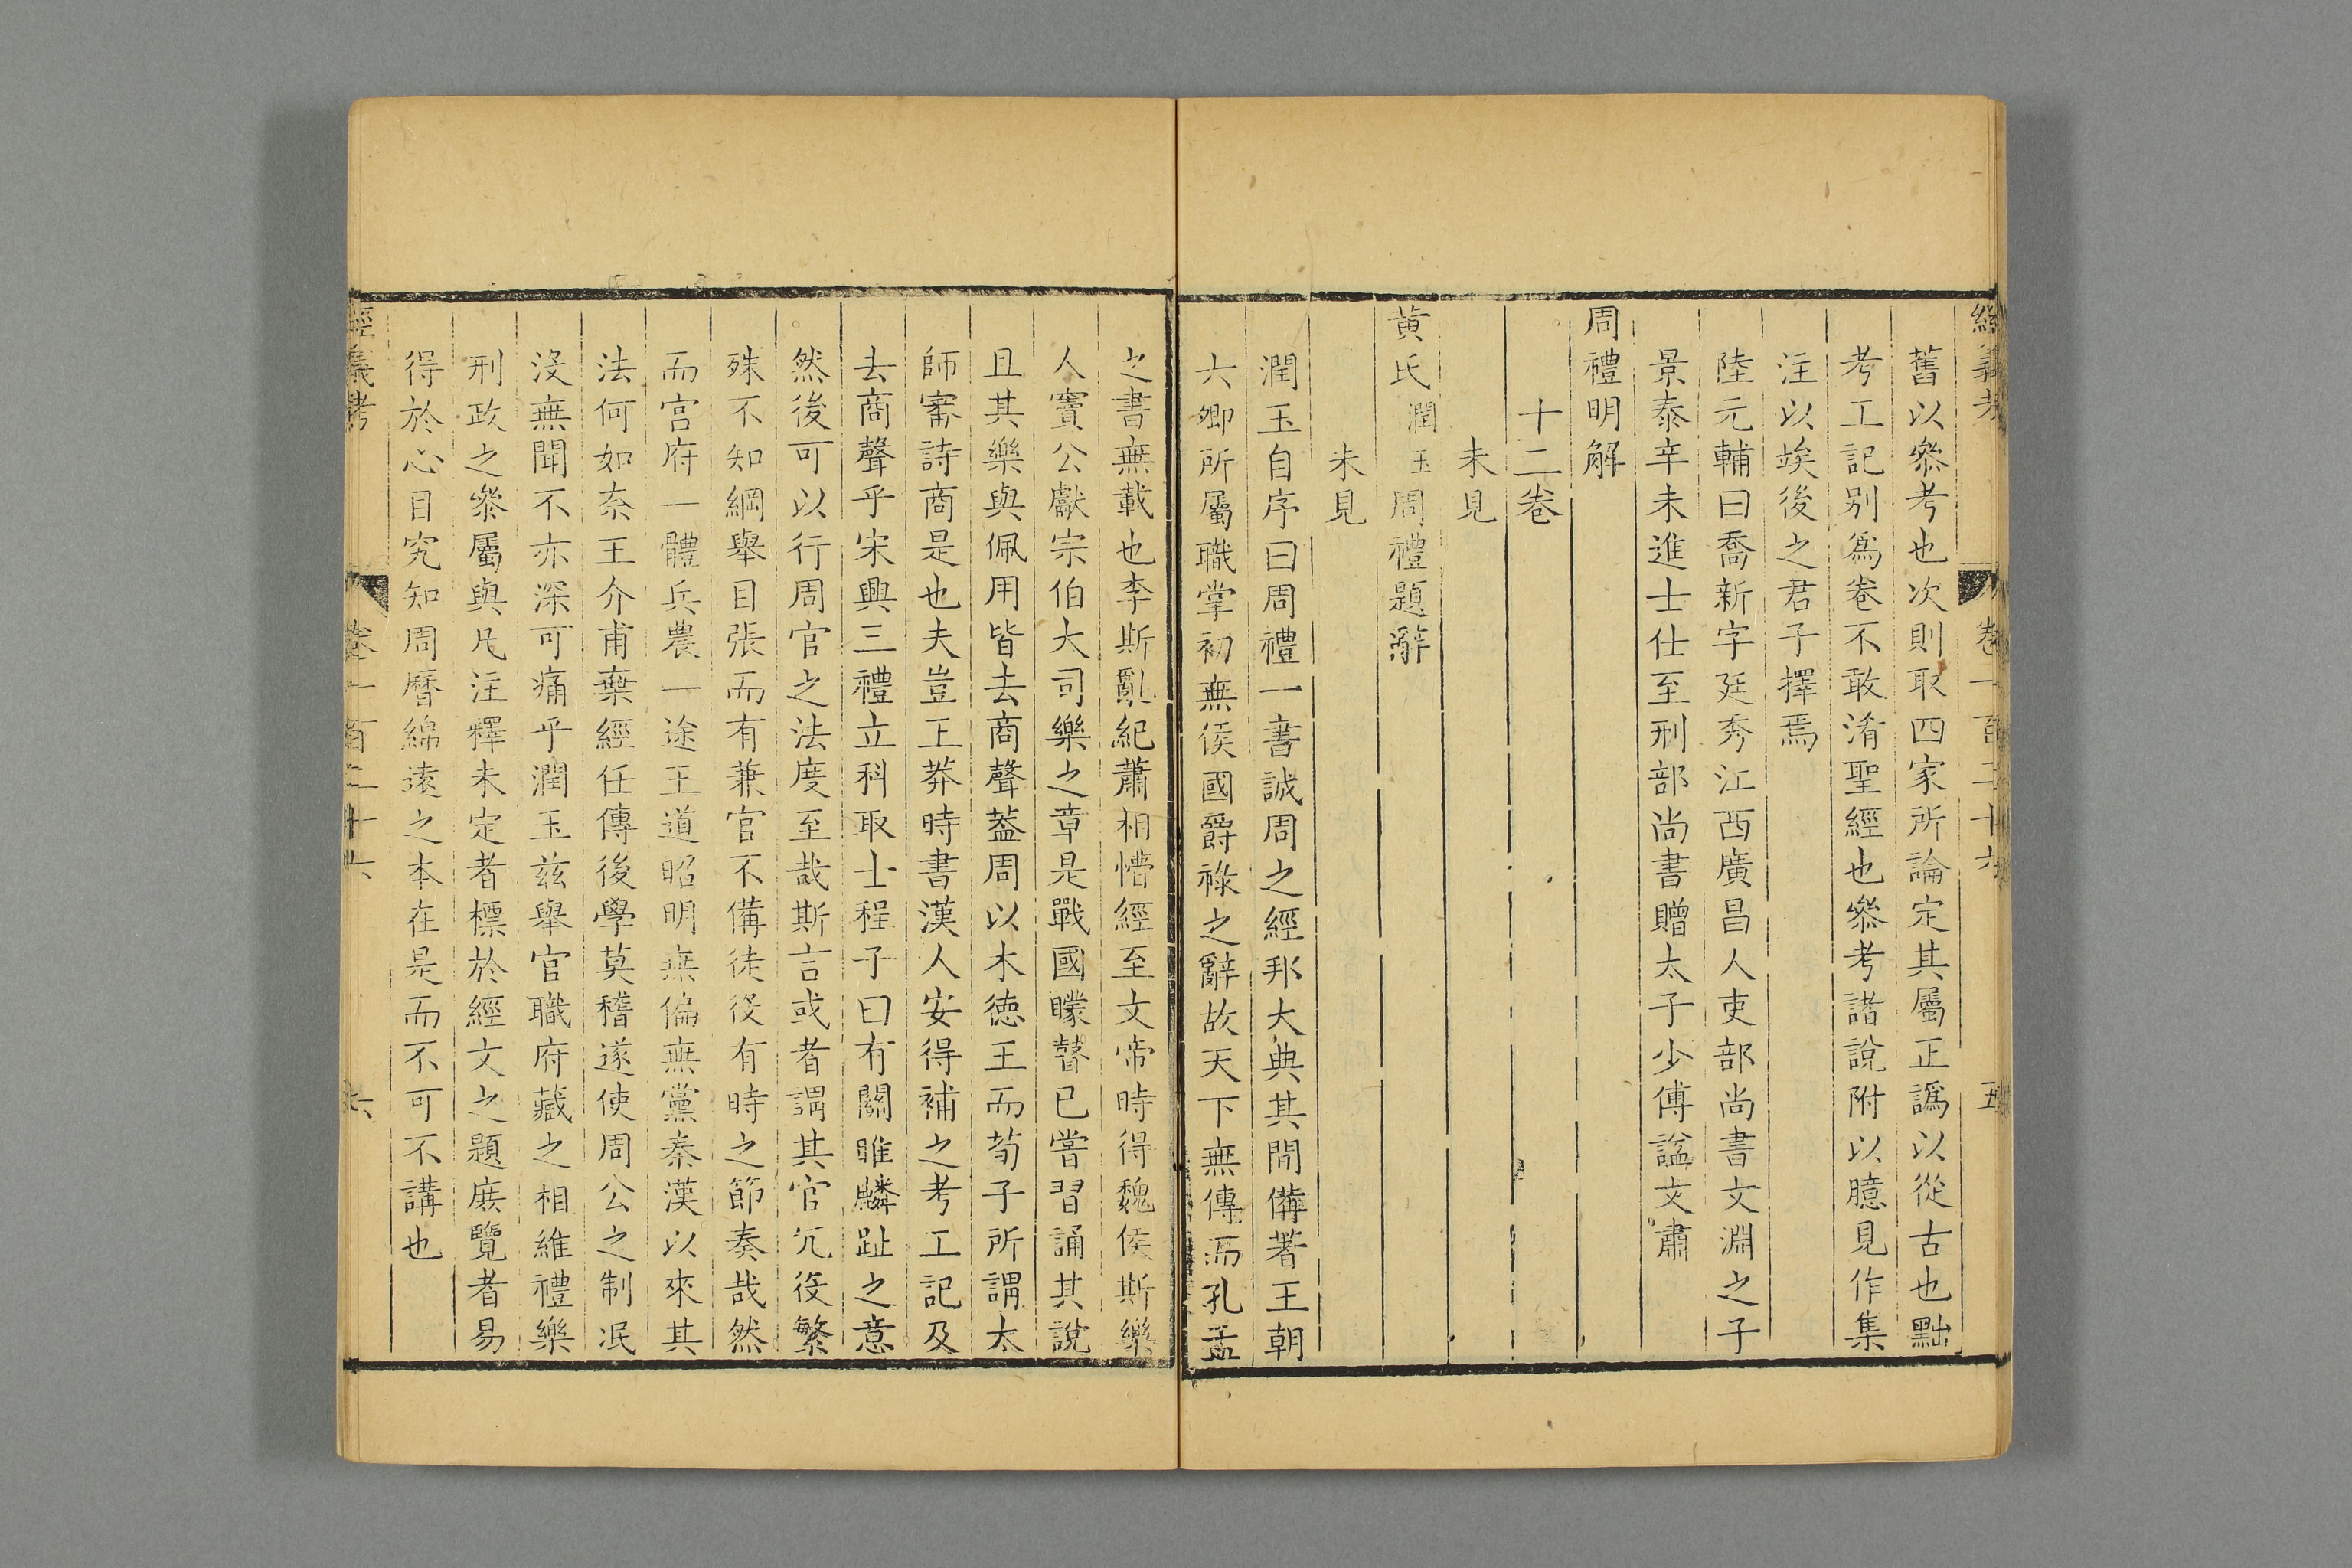 經義考 卷一百二十六 五
舊以叅考也次則取四家所論定其屬正譌以從古也黜
考工記别爲卷不敢淆聖經也叅考諸說附以臆見作集
注以竢後之君子擇焉
陸元輔曰喬新字廷秀江西廣昌人吏部尚書文淵之子
景泰辛未進士仕至刑部尚書贈太子少傅諡文肅
周禮明解
十二卷
未見
黄氏潤玉周禮題辭
未見
潤玉自序曰周禮一書誠周之經邦大典其間備著王朝
六卿所屬職掌初無侯國爵祿之辭故天下無傳焉孔孟
之書無載也李斯亂紀蕭相懵經至文帝時得魏侯斯樂
人竇公獻宗伯大司樂之章是戰國矇瞽已嘗習誦其說
且其樂與佩用皆去商聲葢周以木德王而荀子所謂太
師審詩商是也夫豈王莽時書漢人安得補之考工記及
去商聲乎宋興三禮立科取士程子曰有關雎麟趾之意
然後可以行周官之法度至哉斯言或者謂其官冗役繁
殊不知綱舉目張而有兼官不備徒役有時之節奏哉然
而宫府一體兵農一途王道昭明無偏無黨秦漢以來其
法何如奈王介甫棄經任傳後學莫稽遂使周公之制泯
沒無聞不亦深可痛乎潤玉兹舉官職府藏之相維禮樂
刑政之叅屬與凡注釋未定者標於經文之題庶覽者易
得於心目究知周曆綿遠之本在是而不可不講也
經義考 卷一百二十六 六